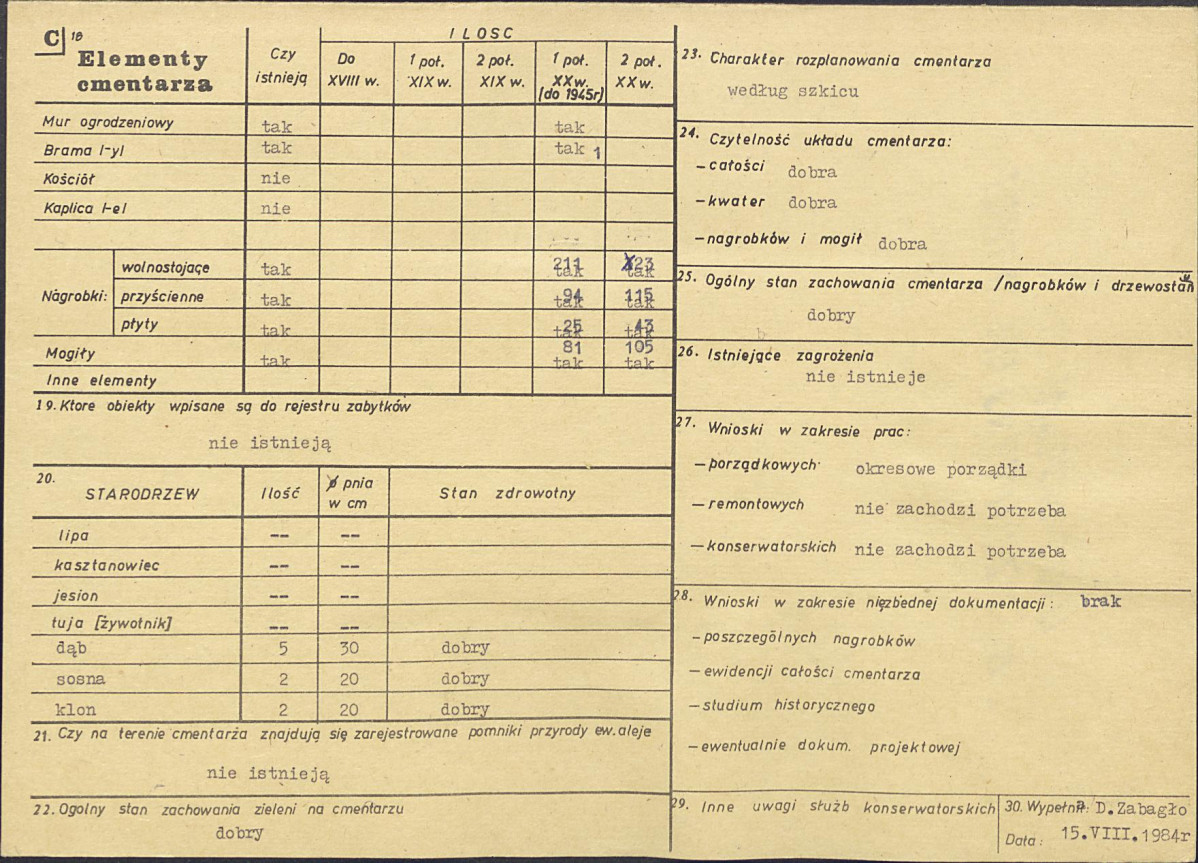 C 18
Elementy cmentarza
Czy istnieją
ILOSC
Do XVIII w.
1 poł. XIX w.
2 poł. XIX w.
1 poł. XX w. (do 1945r)
2 poł. XX w.
Mur ogrodzeniowy tak tak
Brama /-y/ tak tak 1
Kościół nie
Kaplica /-e/ nie
Nagrobki:
wolnostojące tak 211 tak 23 tak
przyścienne tak 94 tak 115 tak
płyty tak 25 tak 43 tak
Mogiły tak 81 tak 105 tak
Inne elementy
19. Ktore obiekty wpisane są do rejestru zabytków
nie istnieją
20. STARODRZEW Ilość ø pnia w cm Stan zdrowotny
lipa -- --
kasztanowiec -- --
jesion -- --
tuja [żywotnik] -- --
dąb 5 30 dobry
sosna 2 20 dobry
klon 2 20 dobry
21. Czy na terenie cmentarza znajdują się zarejestrowane pomniki przyrody ew. aleje
nie istnieją
22. Ogolny stan zachowania zieleni na cmentarzu
dobry
23. Charakter rozplanowania cmentarza
według szkicu
24. Czytelność układu cmentarza:
- całości dobra
- kwater dobra
- nagrobków i mogił dobra
25. Ogólny stan zachowania cmentarza /nagrobków i drzewostanu
dobry
26. Istniejące zagrożenia
nie istnieje
27. Wnioski w zakresie prac:
- porządkowych okresowe porządki
- remontowych nie zachodzi potrzeba
- konserwatorskich nie zachodzi potrzeba
28. Wnioski w zakresie niezbednej dokumentacji: brak
- poszczególnych nagrobków
- ewidencji całości cmentarza
- studium historycznego
- ewentualnie dokum. projektowej
29. Inne uwagi służb konserwatorskich
30. Wypełniła: D.Zabagło
Data: 15.VIII.1984r